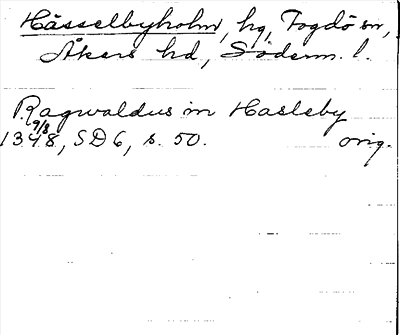 Hässelbyholm, hg, Fogdö sn,
Åkers hd, Söderm. l.
Ragwaldus in Hasleby
9/8
1348, SD6, s. 50. orig.